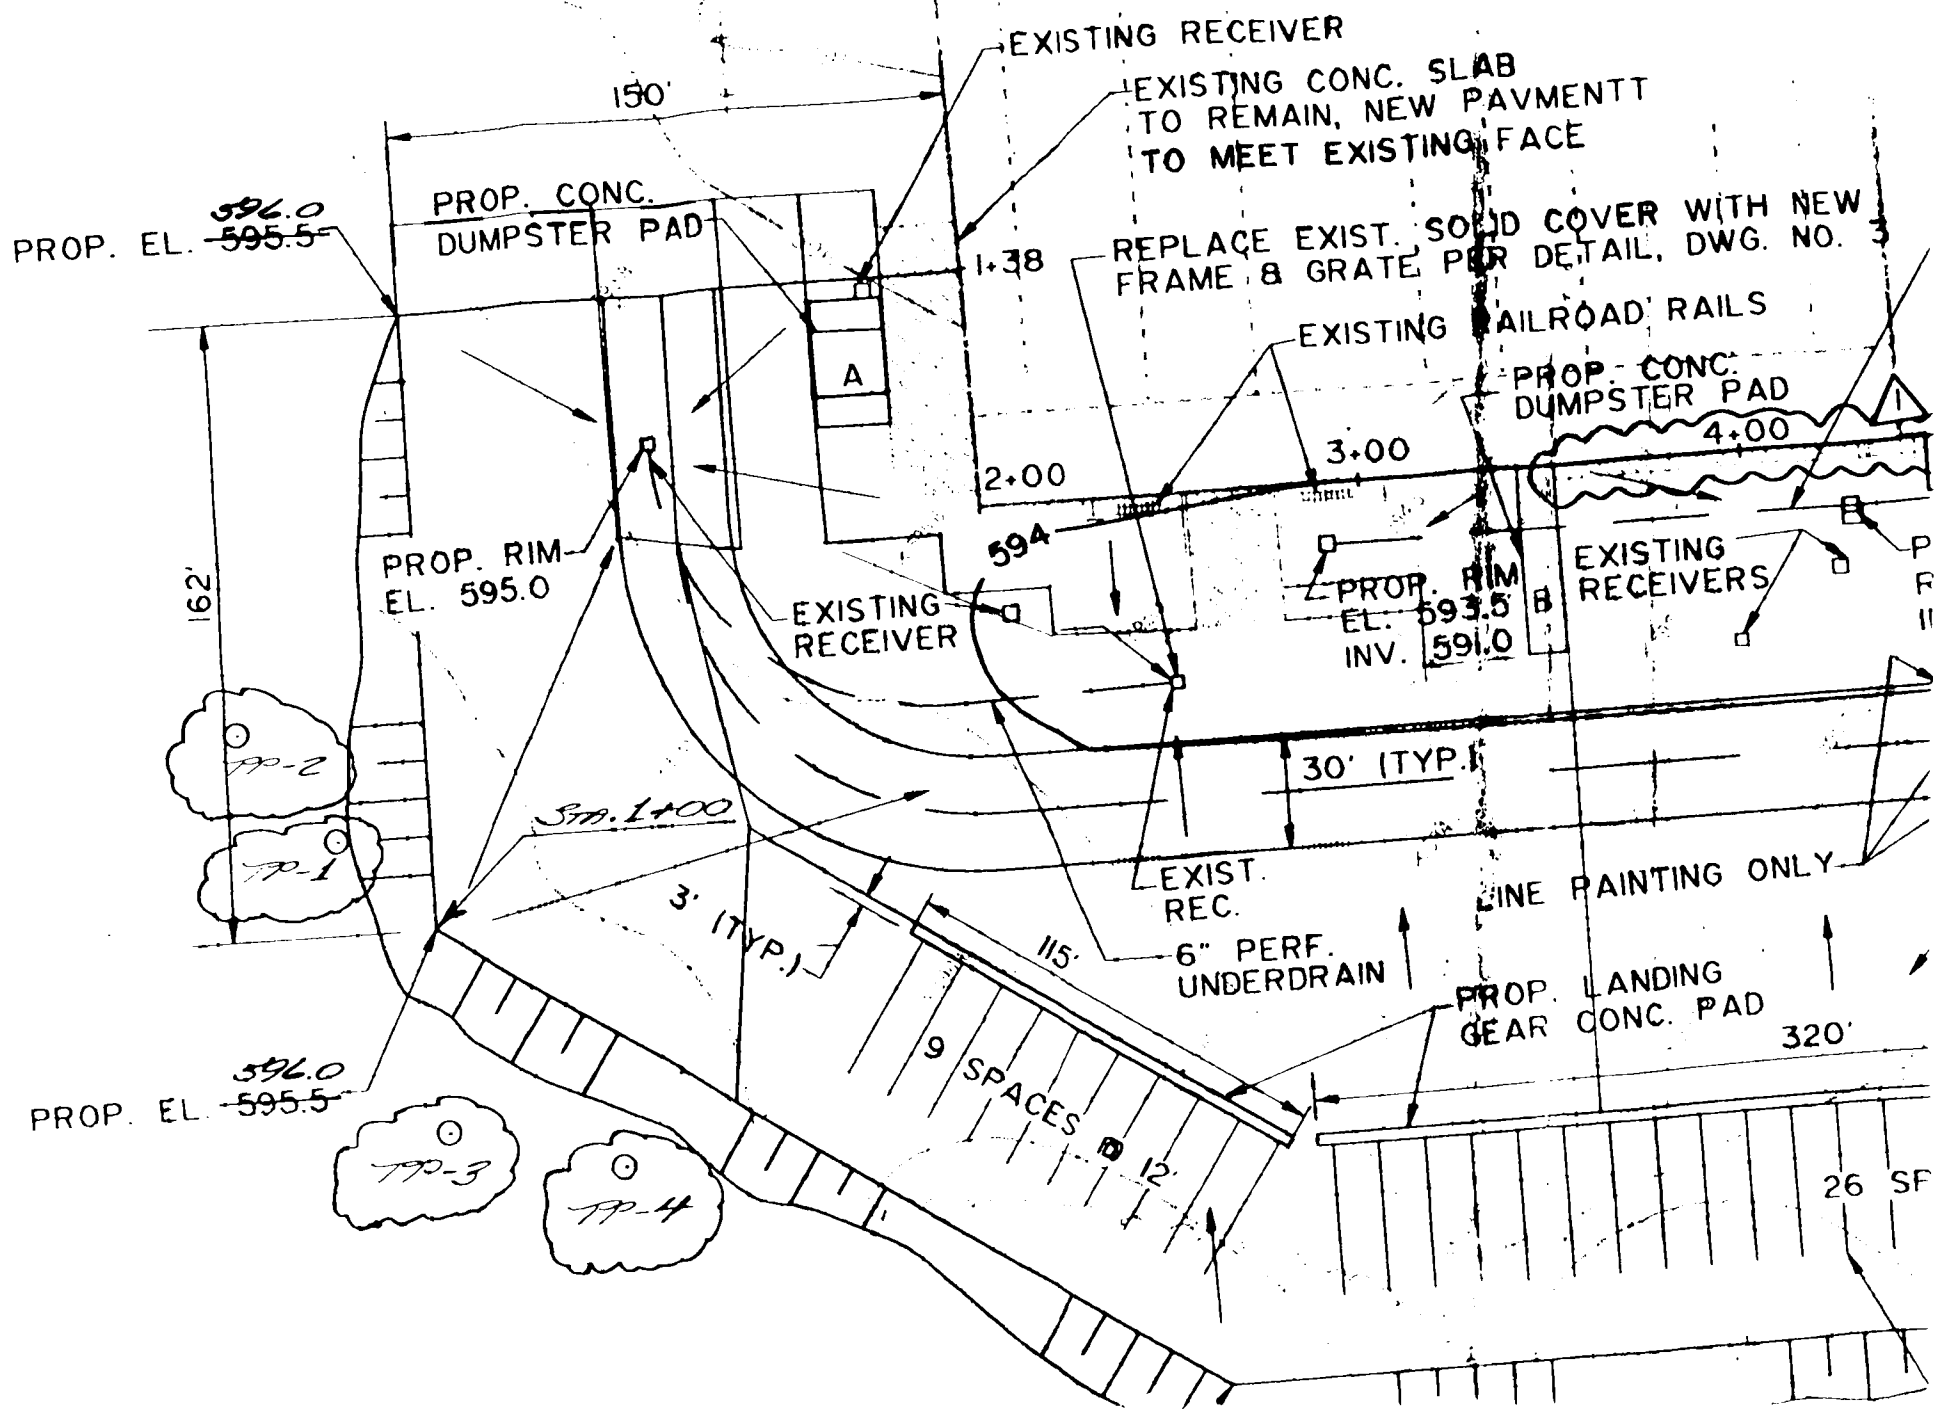 EXISTING RECEIVER
EXISTING CONC. SLAB
TO REMAIN, NEW PAVMENTT
TO MEET EXISTING FACE
150'
PROP. CONC.
DUMPSTER PAD
596.0
PROP. EL. 595.5
1+38
REPLACE EXIST. SOLID COVER WITH NEW
FRAME & GRATE PER DETAIL, DWG. NO. 3
EXISTING RAILROAD RAILS
A
PROP. CONC.
DUMPSTER PAD
1
4+00
3+00
2+00
594
PROP. RIM
EL. 595.0
162'
EXISTING
RECEIVER
PROP. RIM
EL. 593.5
INV. 591.0
B
EXISTING
RECEIVERS
P
R
TP-2
30' (TYP.)
STA. 1+00
TP-1
3' (TYP.)
EXIST.
REC.
LINE PAINTING ONLY
6" PERF.
UNDERDRAIN
115'
PROP. LANDING
GEAR CONC. PAD
320'
9 SPACES @ 12'
596.0
PROP. EL. 595.5
TP-3
TP-4
26 SP